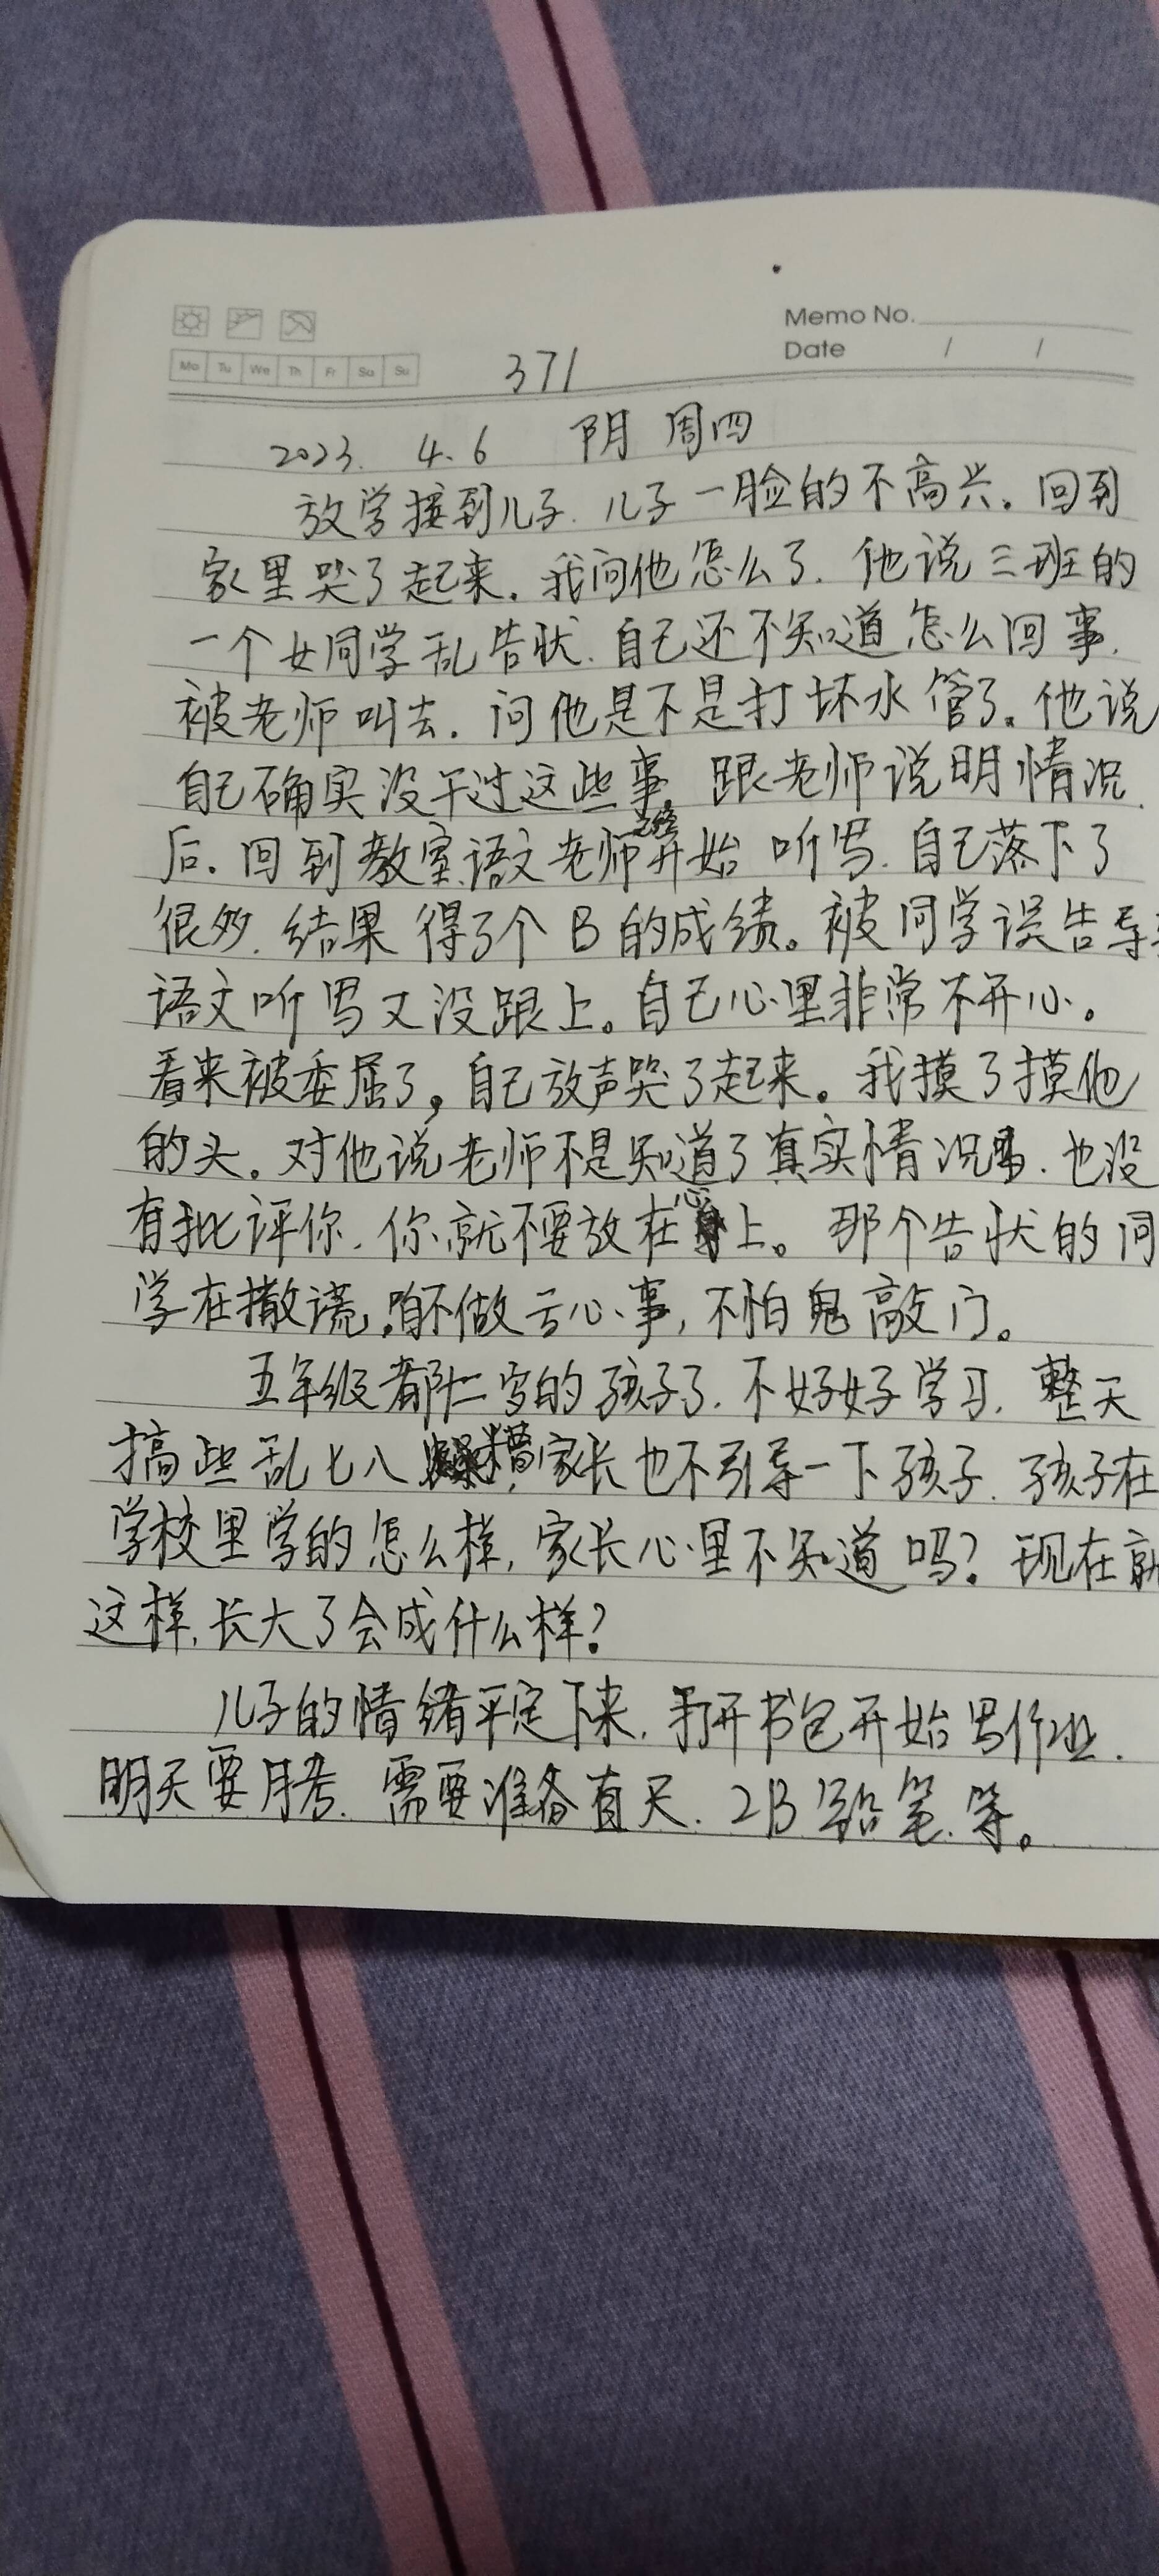 Memo No.
Date / /
Mo Tu We Th Fr Sa Su
371
2023. 4.6 阴 周四
放学接到儿子.儿子一脸的不高兴。回到
家里哭了起来.我问他怎么了.他说三班的
一个女同学乱告状.自己还不知道怎么回事.
被老师叫去.问他是不是打坏水管了。他说
自己确实没干过这些事.跟老师说明情况
后.回到教室.语文老师已经开始听写.自己落下了
很多.结果得了个B的成绩。被同学误告导
语文听写又没跟上。自己心里非常不开心。
看来被委屈了,自己放声哭了起来。我摸了摸他
的头。对他说老师不是知道了真实情况.也没
有批评你.你就不要放在心上。那个告状的同
学在撒谎.咱不做亏心事,不怕鬼敲门。
五年级都十二岁的孩子了.不好好学习.整天
搞些乱七八糟,家长也不引导一下孩子.孩子在
学校里学的怎么样,家长心里不知道吗?现在就
这样.长大了会成什么样?
儿子的情绪平定下来.打开书包开始写作业.
明天要月考.需要准备直尺.2B铅笔.等。